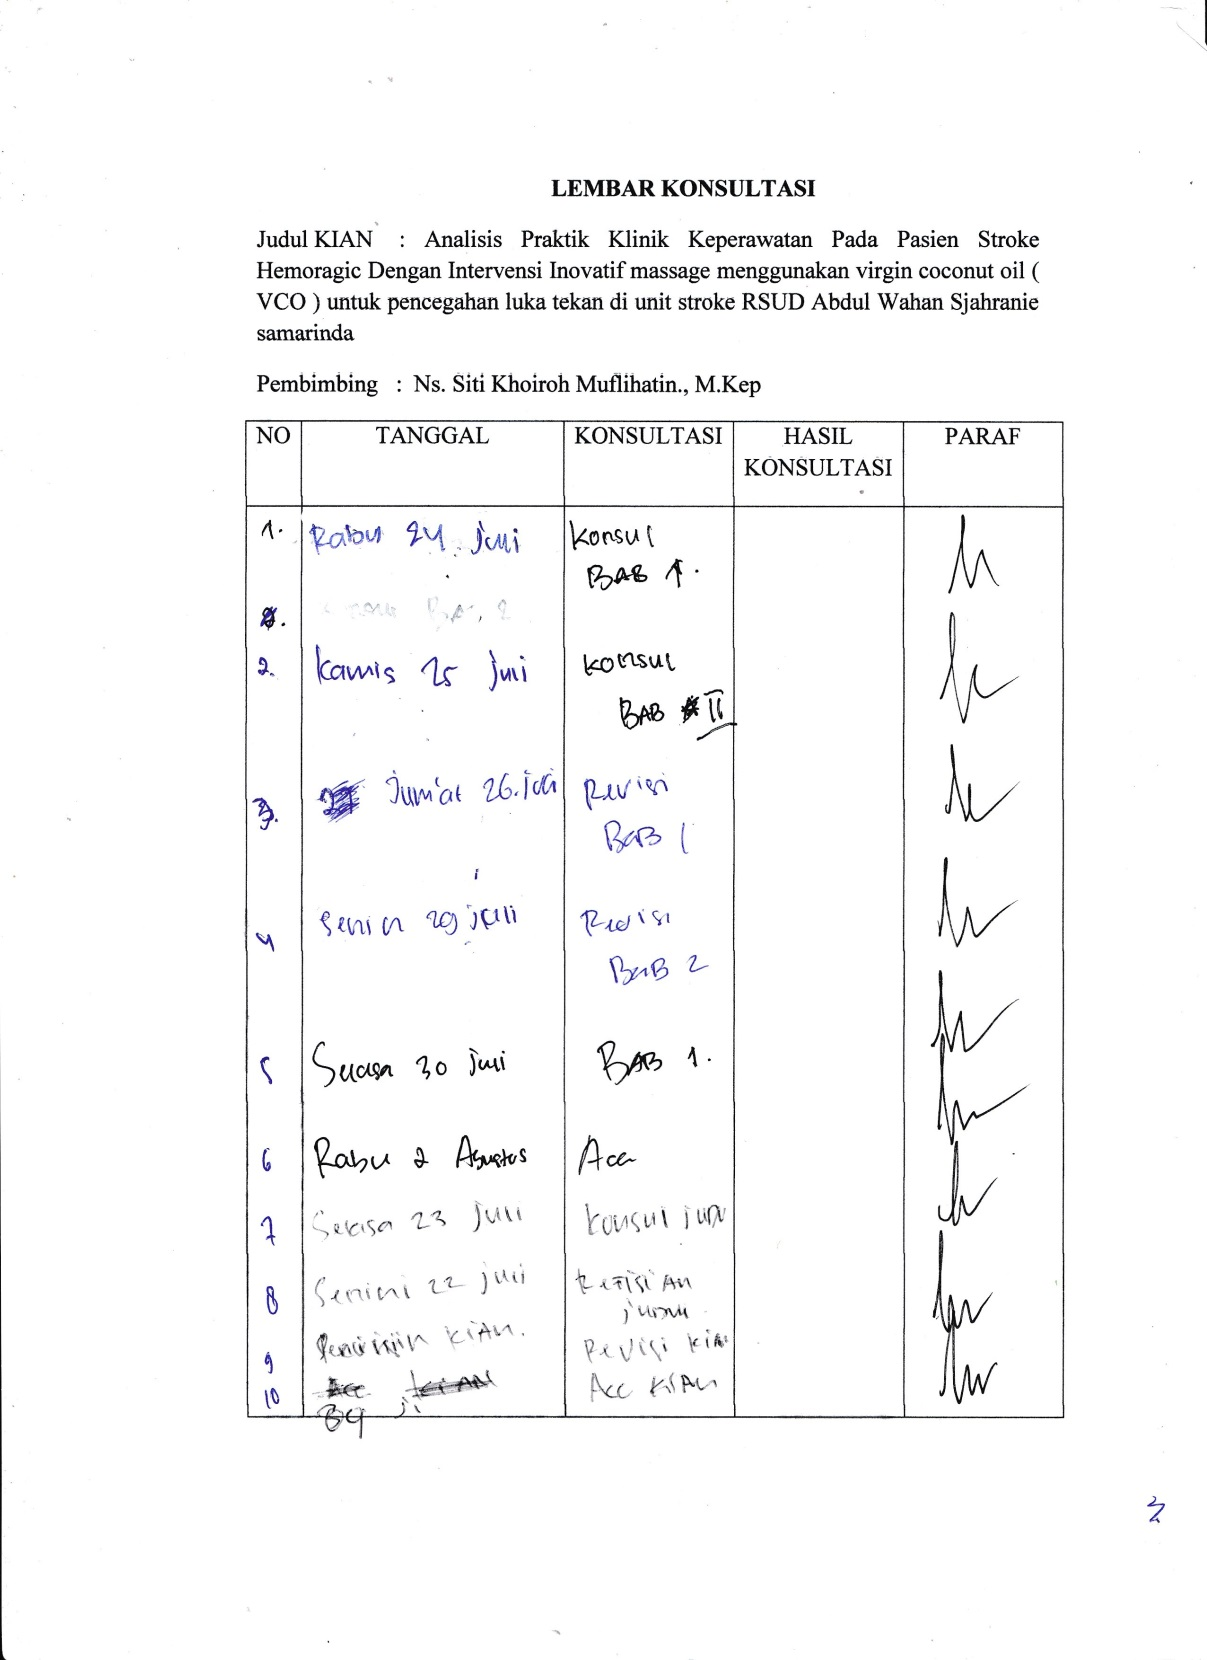 LEMBAR KONSULTASI
Judul KIAN : Analisis Praktik Klinik Keperawatan Pada Pasien Stroke
Hemoragic Dengan Intervensi Inovatif massage menggunakan virgin coconut oil (
VCO ) untuk pencegahan luka tekan di unit stroke RSUD Abdul Wahan Sjahranie
samarinda
Pembimbing : Ns. Siti Khoiroh Muflihatin., M.Kep
NO TANGGAL KONSULTASI HASIL KONSULTASI PARAF
1. Rabu 24 Juli Konsul
BAB 1.
2. Kamis 25 Juli Konsul
BAB II
3. Jum'at 26 Juli Revisi
BAB 1
4 Senin 29 juli Revisi
BAB 2
5 Selasa 30 juli BAB 1.
6 Rabu 2 Agustus Acc
7 Selasa 23 juli Konsul
8 Senin 22 juli
9 KIAN. Revisi KIAN
10 Acc KIAN